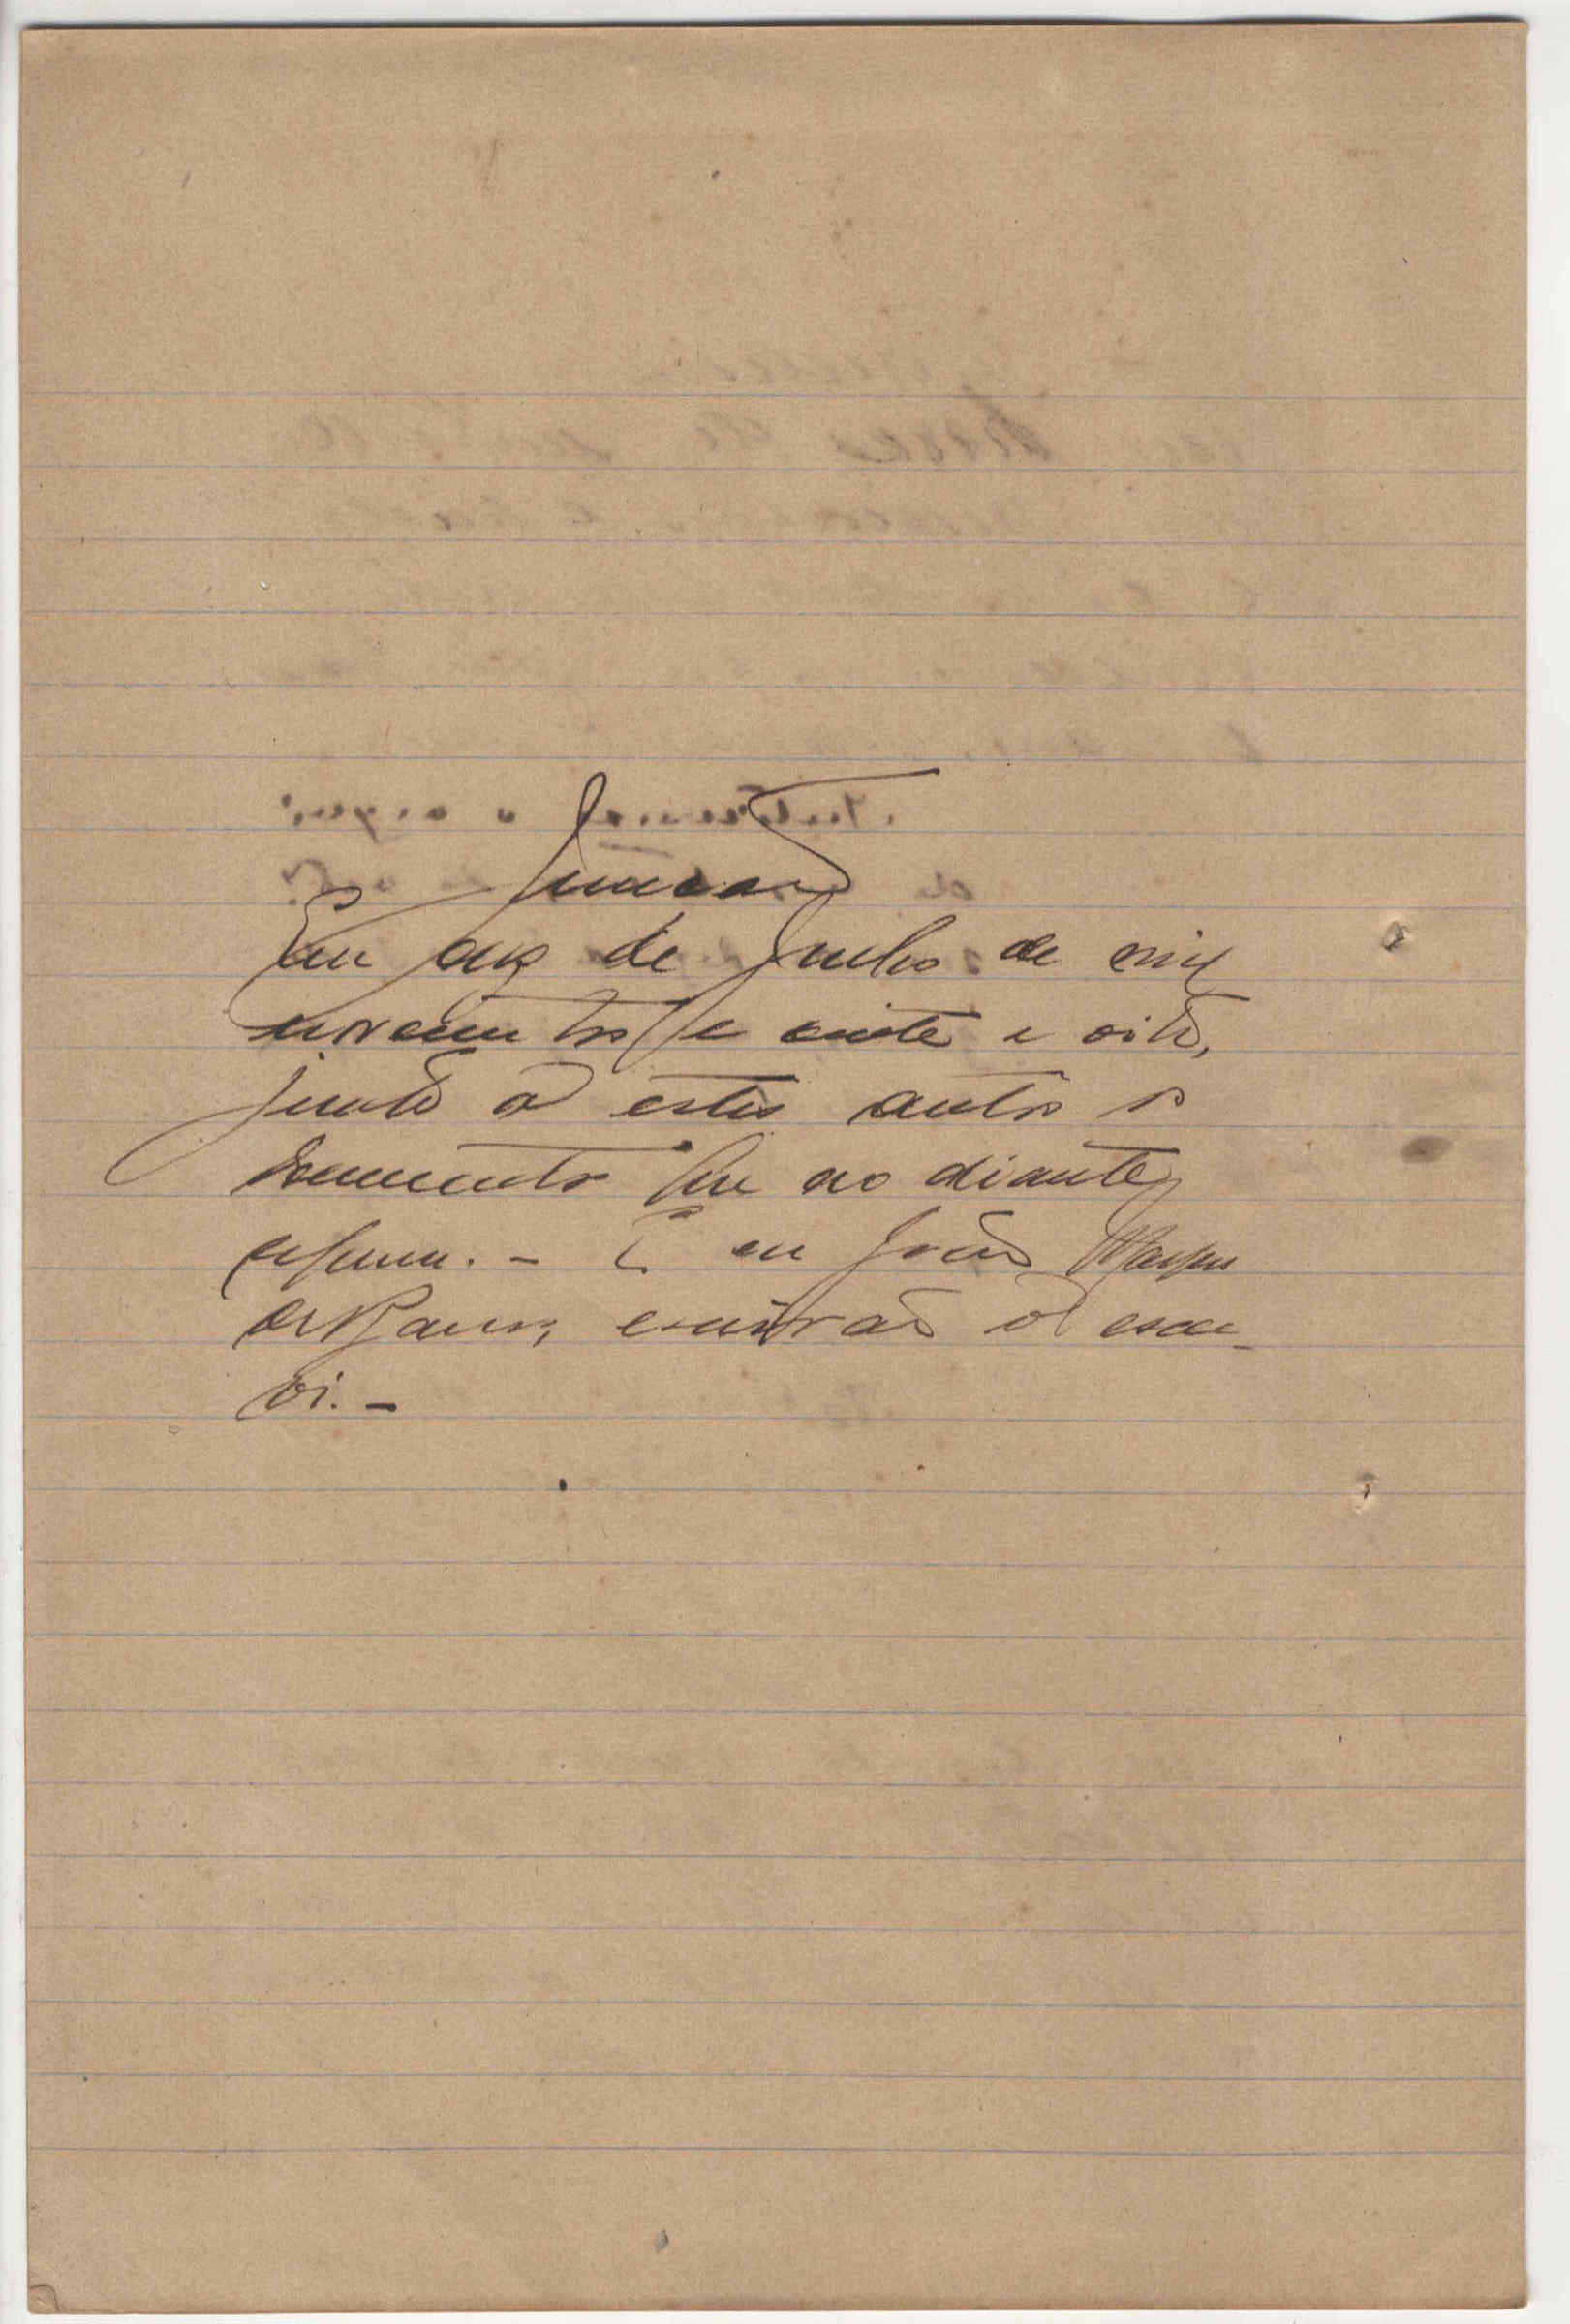 Juntada
Em dez de Junho de mil
novecentos e vinte e oito,
junto a estes autos os
documentos que ao diante
seguem. - E eu João Marques
de, escrivão o escre-
vi. -